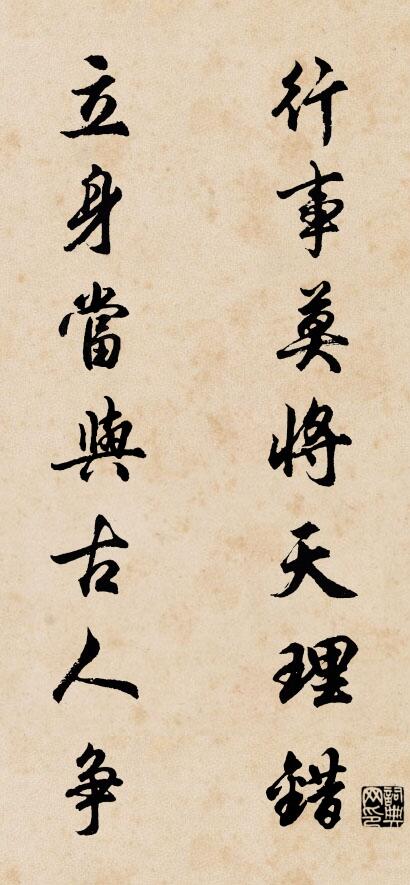 行事莫將天理錯
立身當與古人争
詞典網印